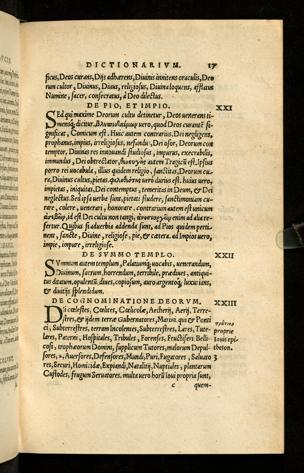 DICTIONARIVM. 17
ficus, Deos curans, Dijs adhærens, Diuinis innitens oraculis, Deo
rum cultor, Diuinus, Diuus, religiosus, Diuina loquens, afflatus
Numine, sacer, consecratus, à Deo dilectus.
DE PIO, ET IMPIO. XXI
Sed qui maxime Deorum cultu detinetur, Deos uenerans ti-
mensq; dicitur. uero, quod Deos curare si-
gnificat, Comicum est. Huic autem contrarius. Dei negligens,
prophanus, impius, irreligiosus, nefandus, Dei osor, Deorum con
temptor, Diuinas res innouandi studiosus, impurus, execrabilis,
immundus, Dei obtrectator, autem Tragici est. Ipsius
porro rei uocabula, illius quidem religio, sanctitas, Deorum cul-
tus, Diuinus cultus, pietas. uerò durius est. huius uero,
impietas, iniquitas, Dei contemptus, temeritas in Deum, & Dei
neglectus. Sed ipsa uerba sunt, pietati studere, sanctimoniam cu-
rare, colere, uenerari, honorare. contrarium autem est unicum
id est Dei cultum tangi, enim ad alia re-
fertur. Quibus si aduerbia addenda sunt, ad Pios quidem perti-
nent, sanctè, Diuine, religiose, pie, & cætera. ad Impios uero, im
pie, impure, irreligiose.
DE SVMMO TEMPLO. XXII
Summum autem templum, Palatiumq; uocabis, uenerandum,
Diuinum, sacrum, horrendum, terribile, prædiues, antiqui-
tus datum, opulentũ, diues, copiosum, auro argentoq; luxurians,
& diuitijs splendidum.
DE COGNOMINATIONE DEORVM. XXIII
Di cœlestes, Cœlites, Cœlicolæ, Aetherij, Aerij, Terre-
stres, & ijdem terræ Gubernatores, Marini, qui & Ponti
ci, Subterrestres, terram incolentes, Subterrestres, Lares, Tute-
lares, Paterni, Hospitales, Tribules, Forenses, Fructiferi, Belli-
cosi, trophæorum Domini, supplicum Tutores, malorum Depul-
sores, *, Auersores, Defensores, Mundi, Puri, Fugatores, Salua
res, Securi, Homicidæ, Expiandi, Natalitij, Nuptiales, plantarum
Custodes, frugum Seruatores. multa uero horũ Ioui propria sunt,
proprie
Iouis epi-
theton.
3
c quem-